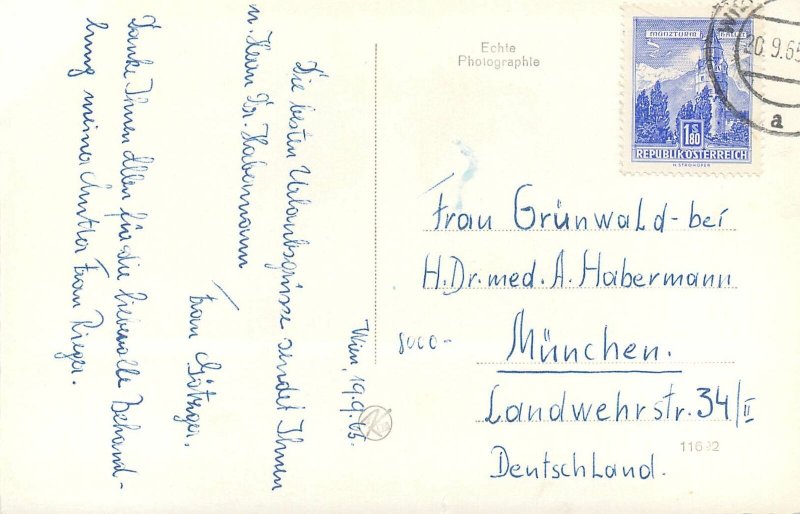 Wien, 19.9.65.
Die besten Urlaubsgrüsse sendet Ihnen
u. Herrn Dr. Habermann
Frau
Danke Ihnen allen für die liebevolle Behand-
lung meiner Mutter Frau Rieger.
Echte
Photographie
MÜNZTURM
REPUBLIK ÖSTERREICH
S
1.80
WIEN
20.9.65
a
Frau Grünwald - bei
H. Dr. med. A. Habermann
8000 - München.
Landwehrstr. 34/II
Deutschland.
11692